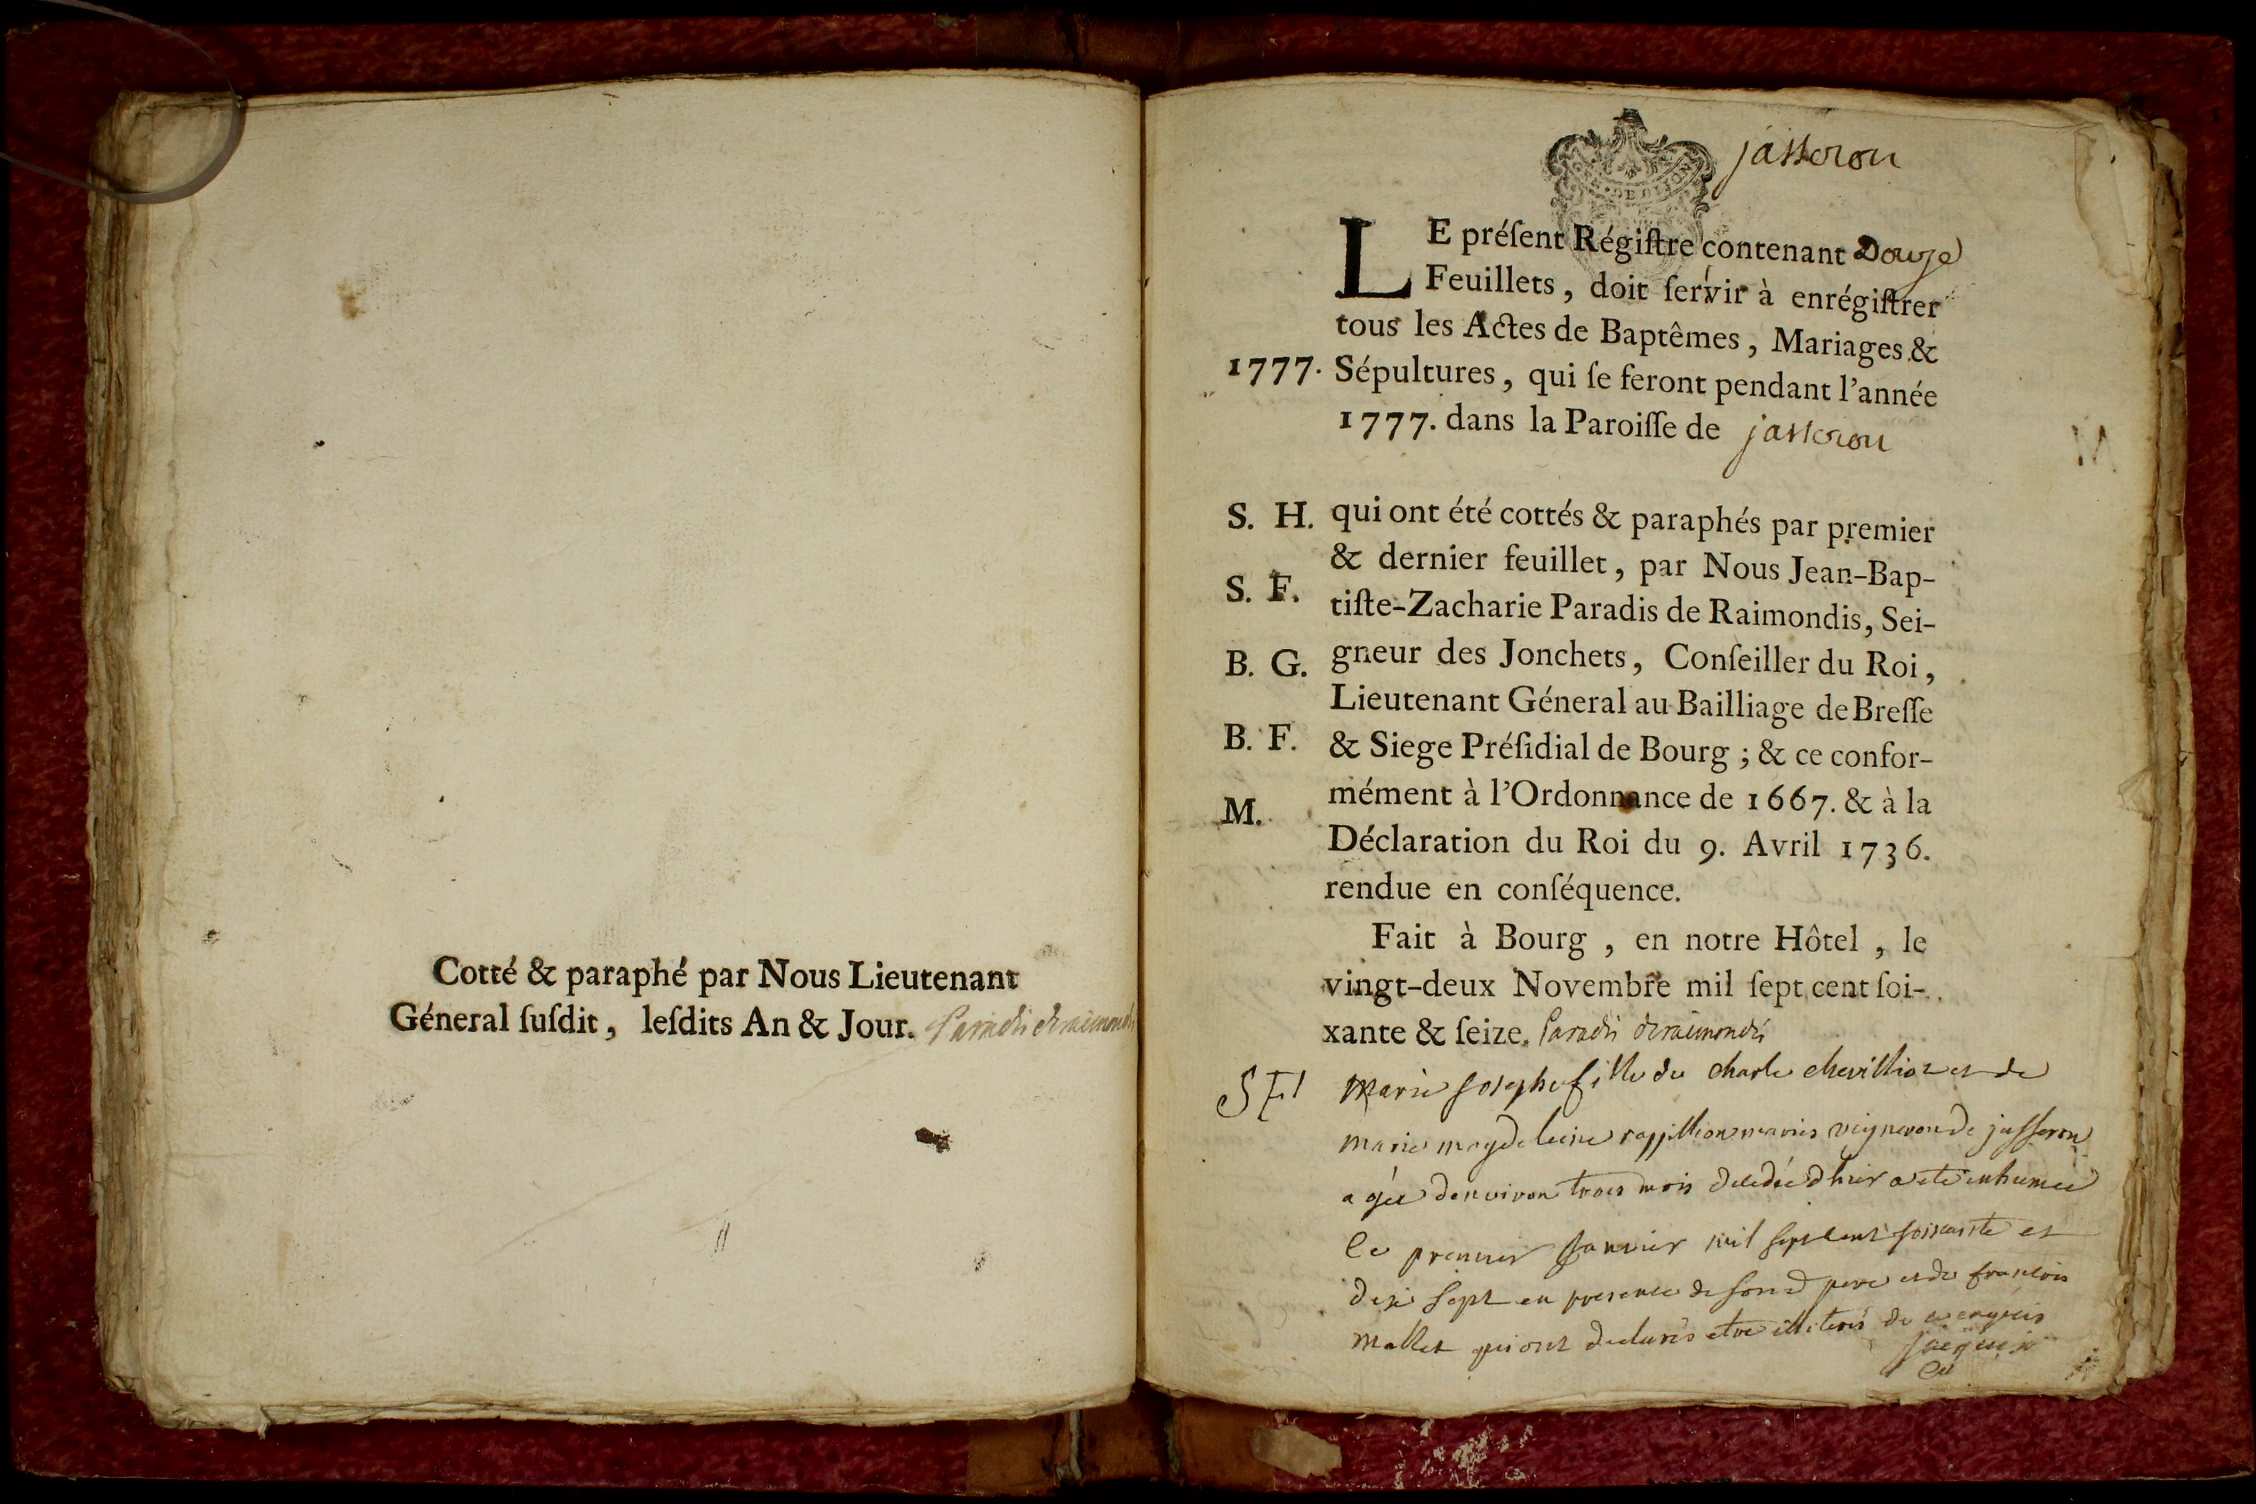 Cotté & paraphé par Nous Lieutenant
Géneral ſuſdit, leſdits An & Jour. Paradis deraimondis
jasseron
LE préſent Régiſtre contenant Douze
Feuillets, doit ſervir à enrégiſtrer
tous les Actes de Baptêmes, Mariages &
1777. Sépultures, qui ſe feront pendant l'année
1777. dans la Paroiſſe de jasseron
S. H. qui ont été cottés & paraphés par premier
& dernier feuillet, par Nous Jean-Bap-
S. F. tiſte-Zacharie Paradis de Raimondis, Sei-
B. G. gneur des Jonchets, Conſeiller du Roi,
Lieutenant Géneral au Bailliage de Breſſe
B. F. & Siege Préſidial de Bourg ; & ce confor-
M. mément à l'Ordonnance de 1667. & à la
Déclaration du Roi du 9. Avril 1736.
rendue en conſéquence.
Fait à Bourg, en notre Hôtel, le
vingt-deux Novembre mil ſept cent ſoi-
xante & ſeize. Paradis deraimondis
S F 1 Marie Josephe fille de charle chevillion et de
marie magdeleine mariés vigneron de jasseron
agée denviron trois mois decedée dhier a eté inhumée
le premier Janvier mil sept cent soixante et
dixi sept en presence de sond pere et de francois
mallet qui ont declarés etre illiterés de ce enquis